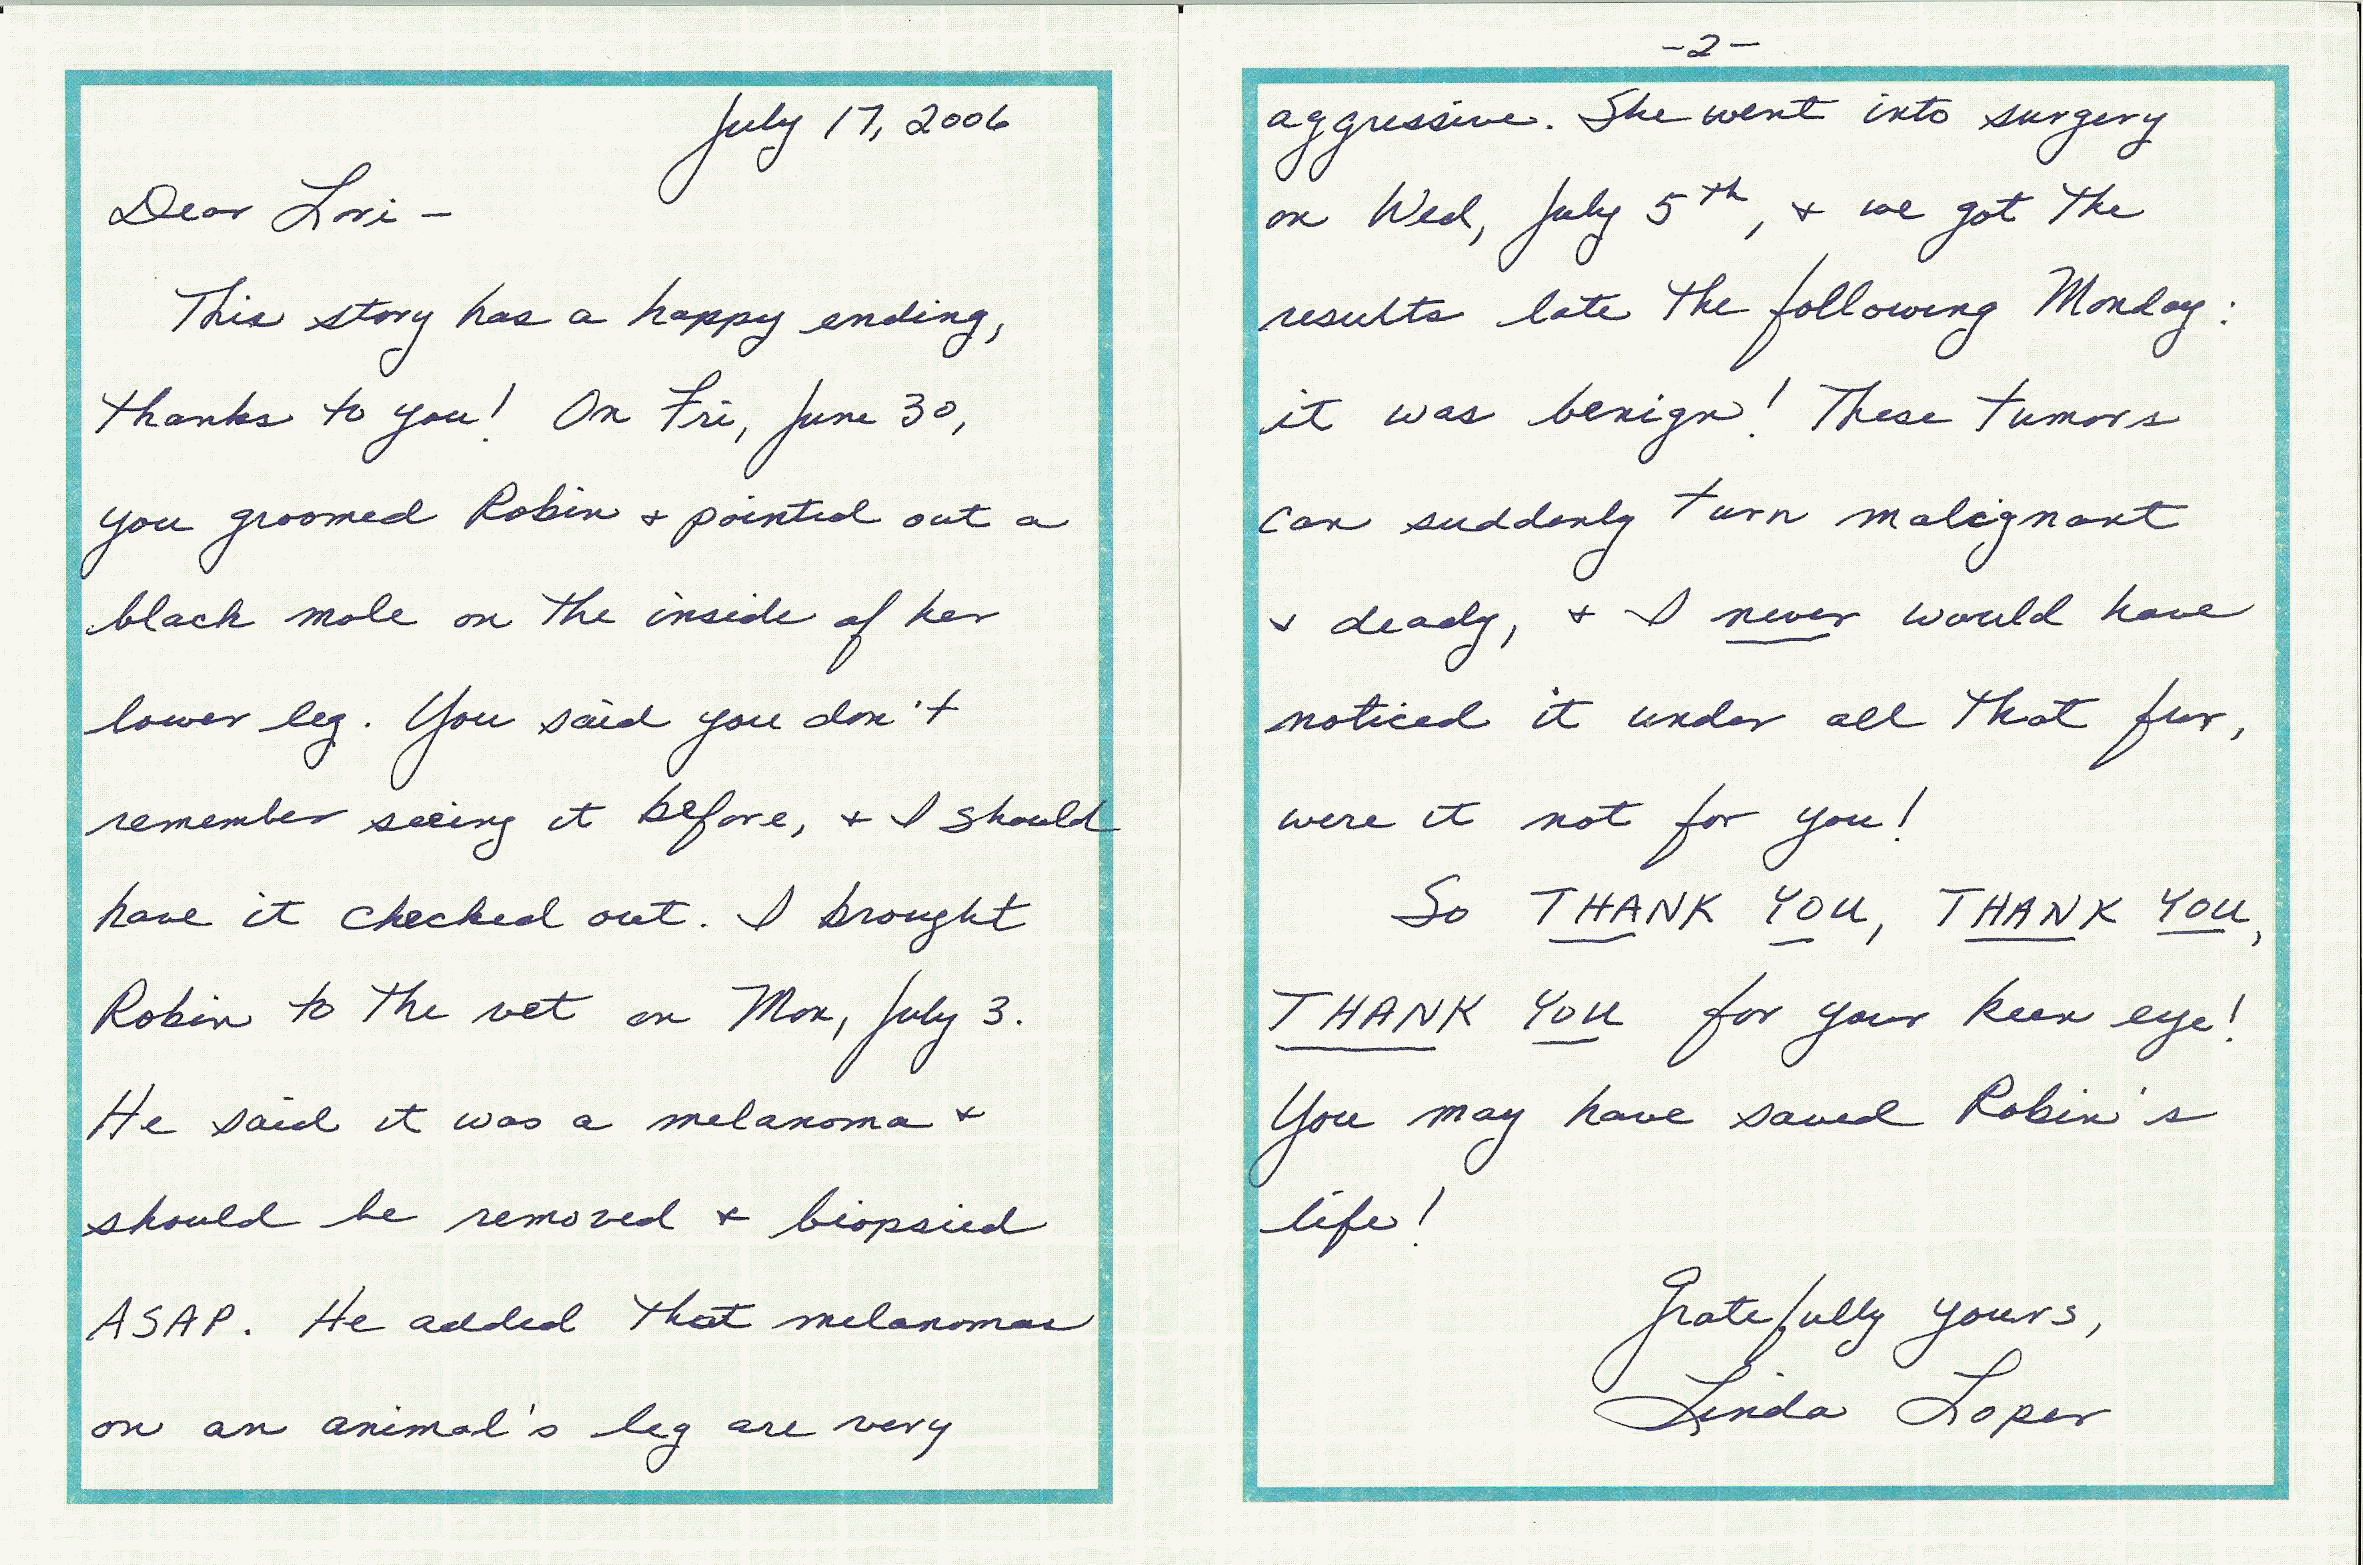 July 17, 2006
Dear Lori -
This story has a happy ending,
thanks to you! On Fri, June 30,
you groomed Robin & pointed out a
black mole on the inside of her
lower leg. You said you don't
remember seeing it before, & I should
have it checked out. I brought
Robin to the vet on Mon, July 3.
He said it was a melanoma &
should be removed & biopsied
ASAP. He added that melanomas
on an animal's leg are very
-2-
aggressive. She went into surgery
on Wed, July 5th, & we got the
results late the following Monday:
it was benign! These tumors
can suddenly turn malignant
& deady, & I never would have
noticed it under all that fur,
were it not for you!
So THANK YOU, THANK YOU,
THANK YOU for your keen eye!
You may have saved Robin's
life!
Gratefully yours,
Linda Loper